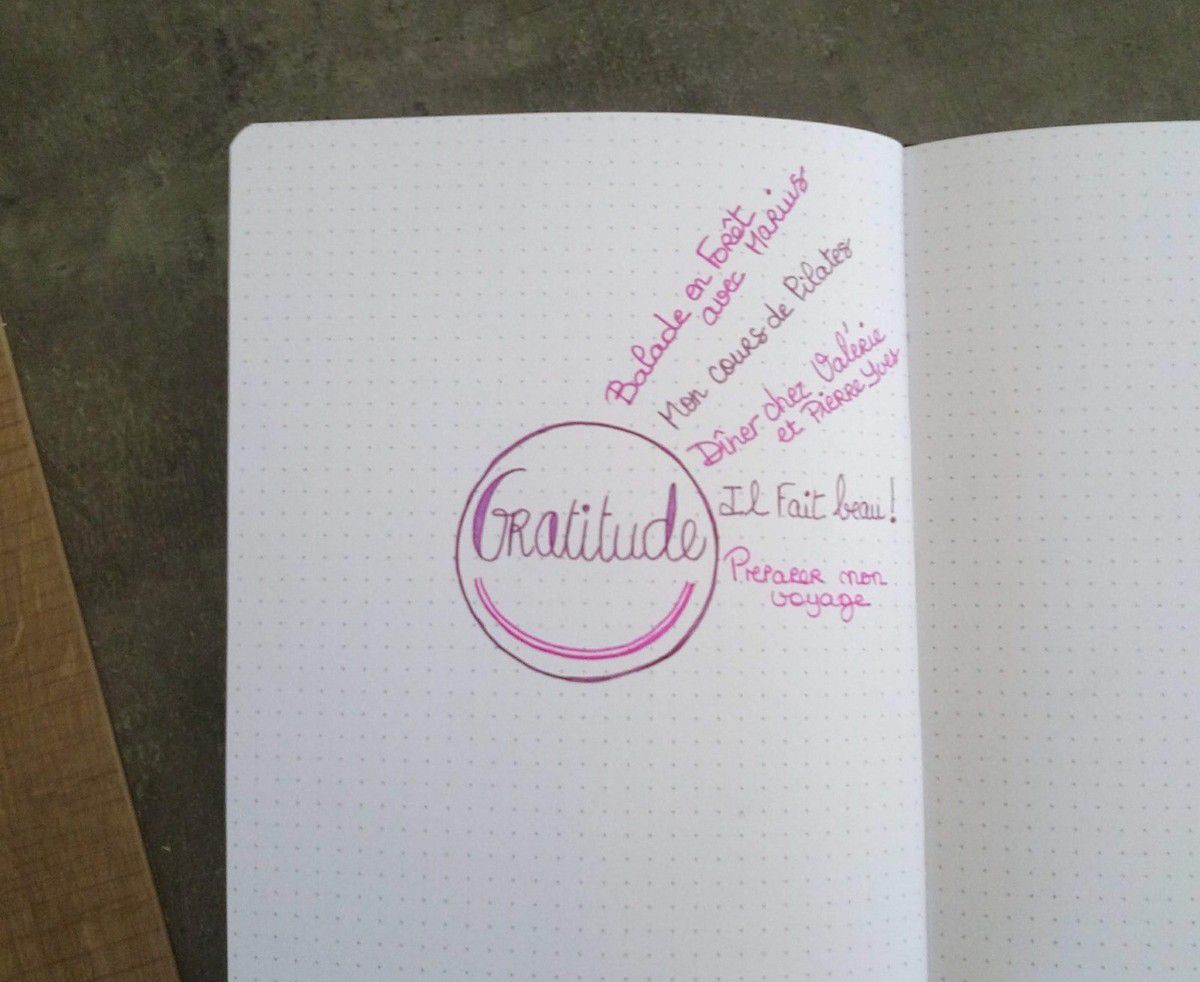 Balade en Forêt
avec Marius
Mon cours de Pilates
Dîner chez Valérie
et Pierre Yves
Il Fait beau!
Gratitude
Preparer mon
voyage